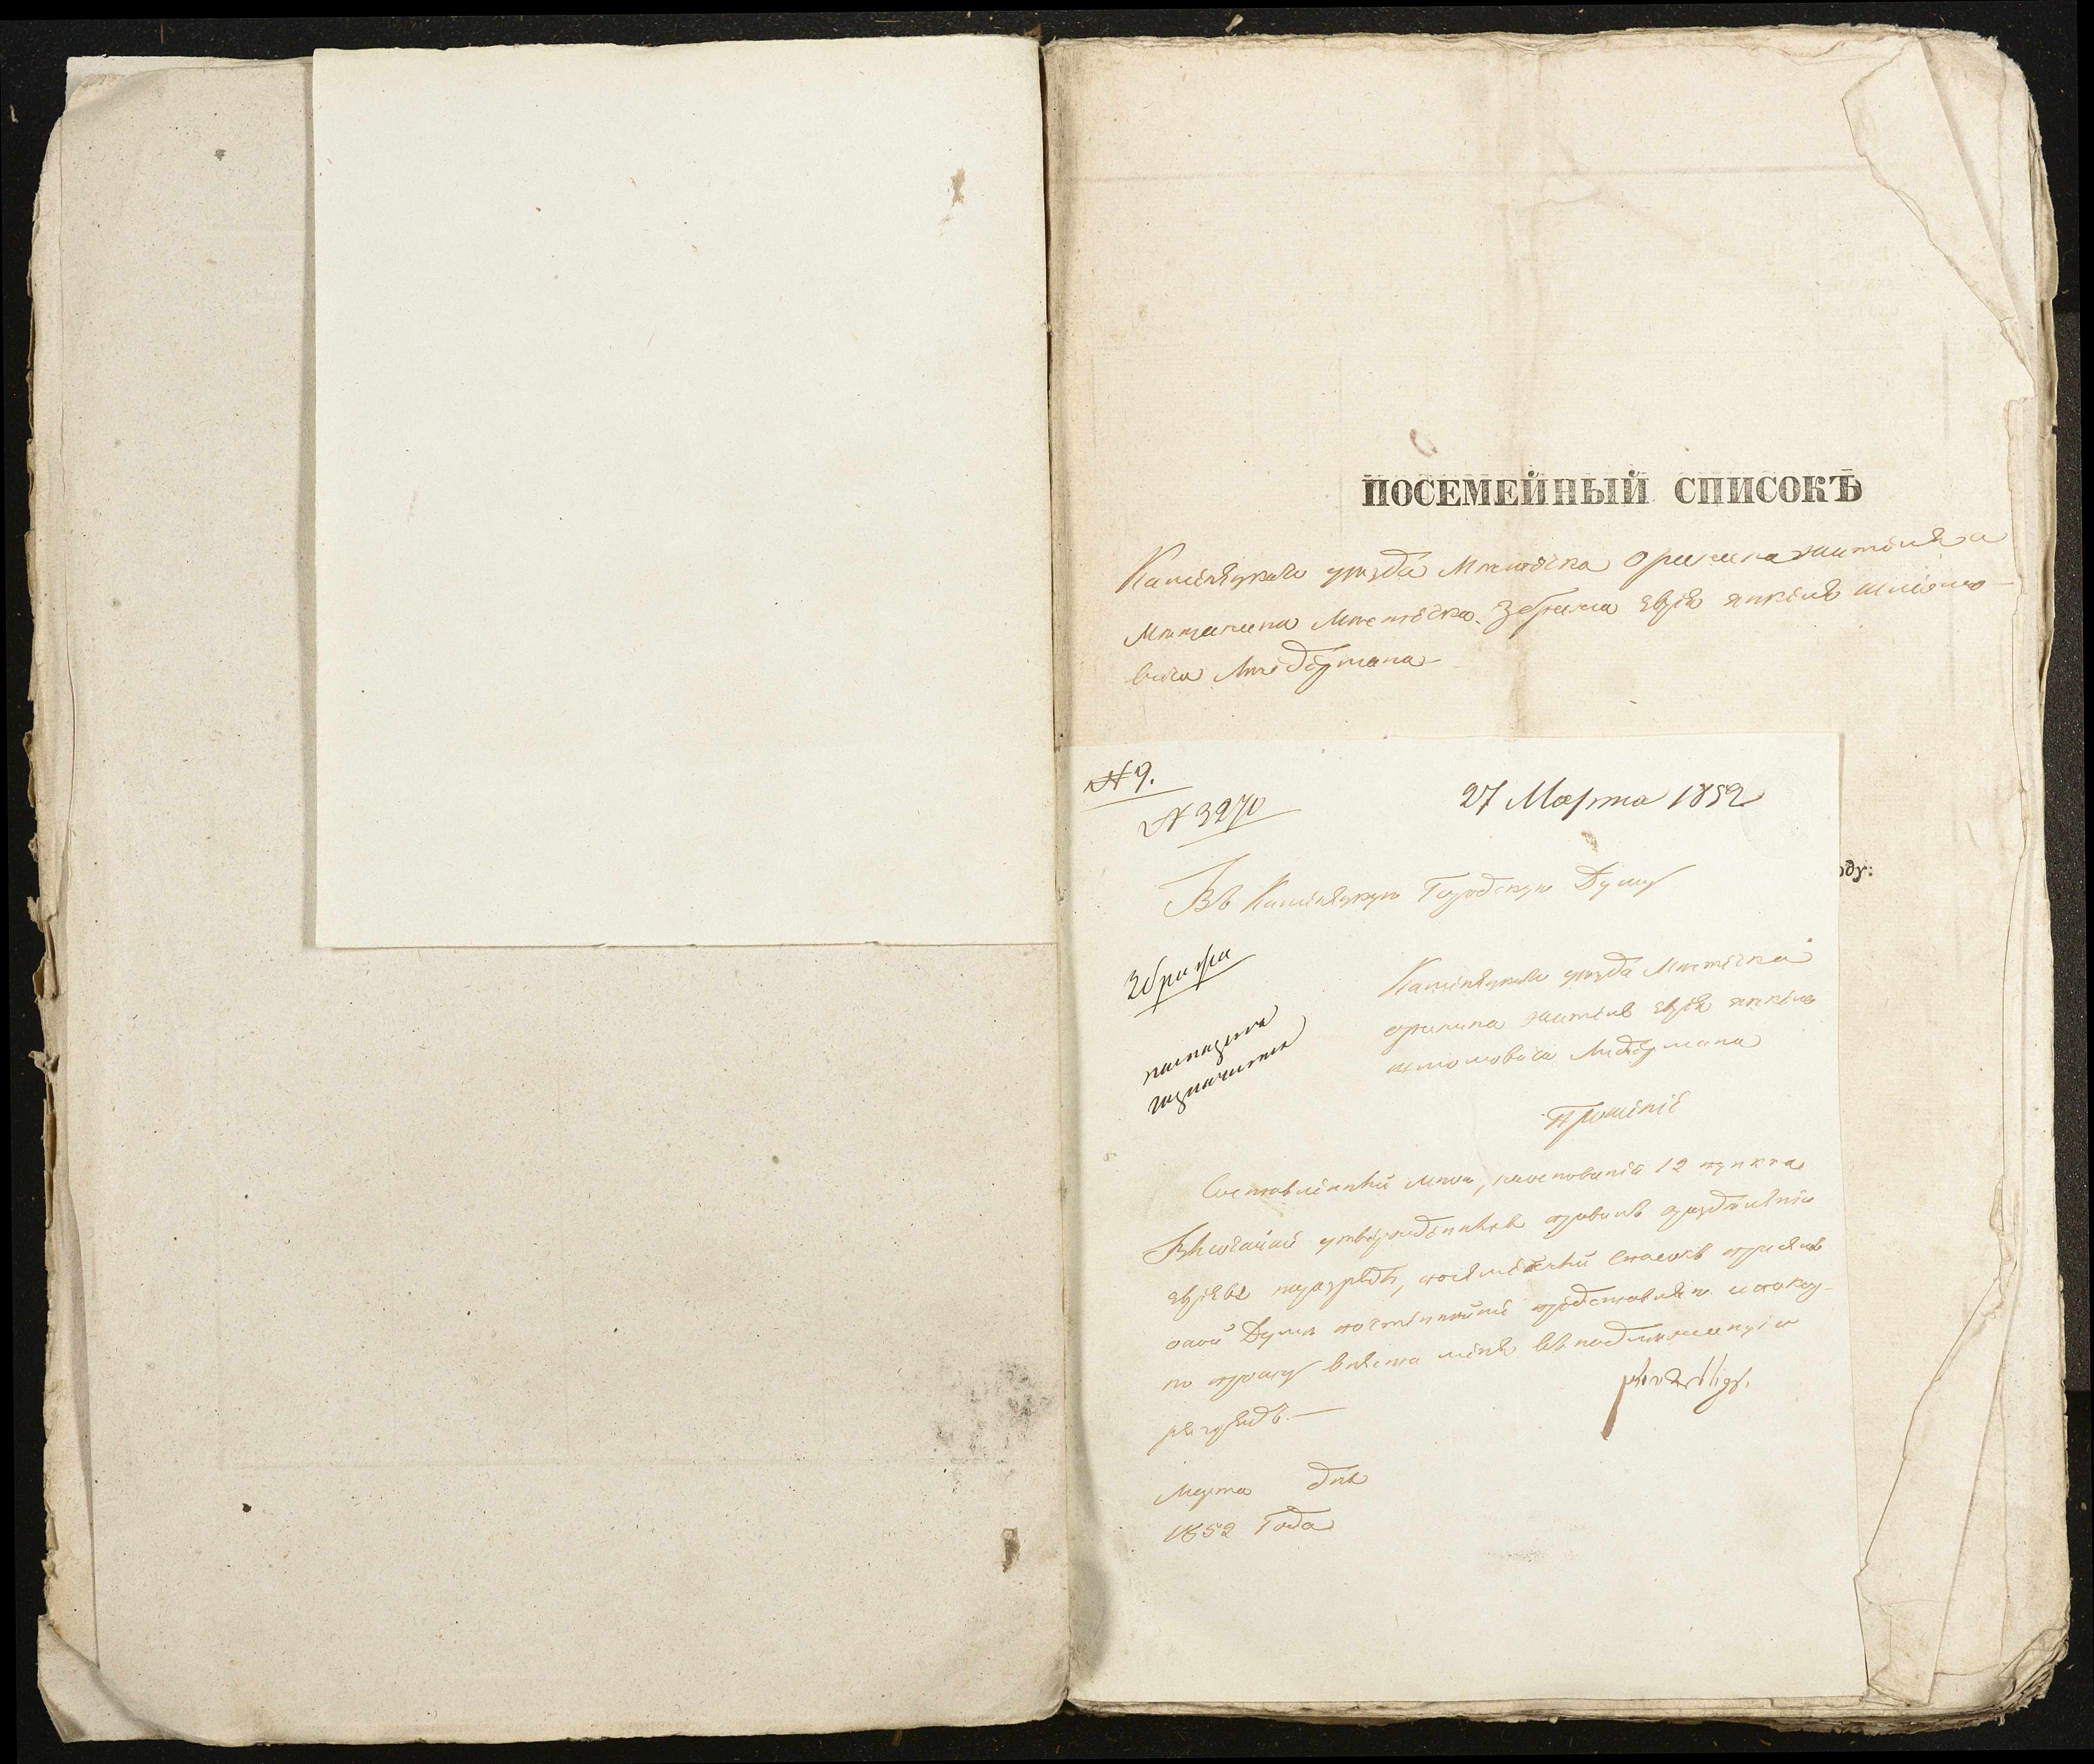 ПОСЕМЕЙНЫЙ СПИСОКЪ
Каменецкаго уезда Местечка Оринина жителя
Мещанина Местечка Збрижа еврея Янкеля Шліомо-
вича Либермана
№ 9.
№ 3270
27 Марта 1852
оду:
Въ Каменецкую Городскую Думу
Збрижа
Каменецкаго уезда Местечка
Оринина жителя еврея Янкеля
Шліомовича Либермана
Прошеніе
Составленный мною, на основаніи 12 пункта
Высочайше утвержденныхъ правилъ о разделеніи
евреевъ на разряды, посемейный списокъ при семъ
оной Думе почтеннейше представляю и покор-
но прошу внести меня въ надлежащій
разрядъ.—
Марта дня
1852 Года